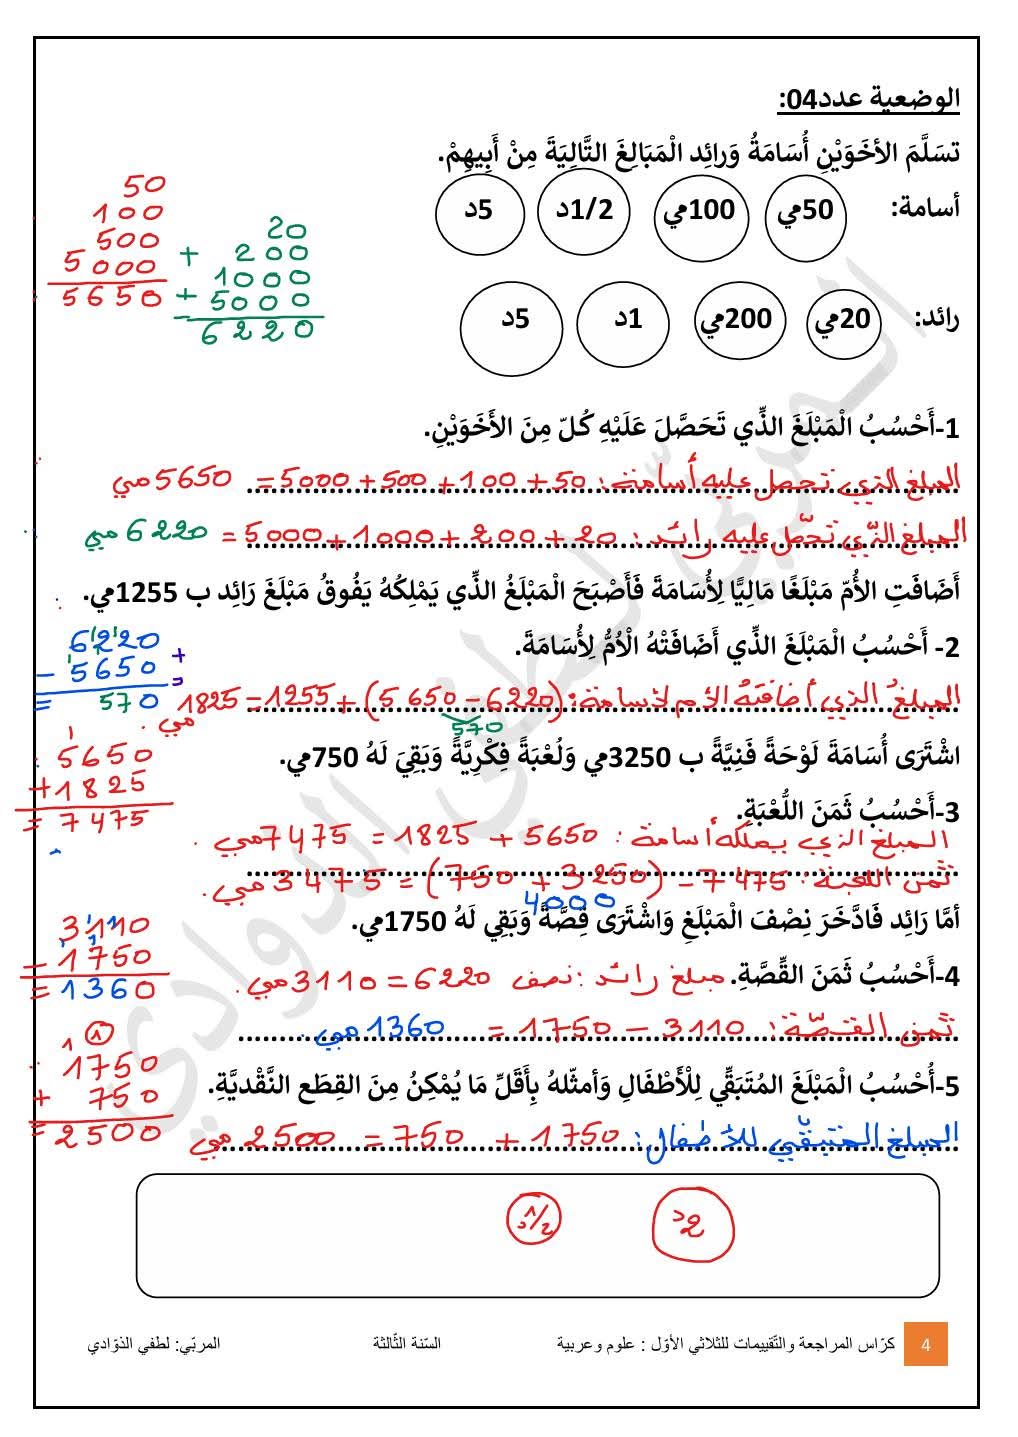 الوضعية عدد04:
تسَلَّمَ الأخَوَيْنِ أُسَامَةُ وَرائِد الْمَبَالِغَ التَّالِيَةَ مِنْ أَبِيهِمْ.
أسامة: 50مي 100مي 1/2د 5د
رائد: 20مي 200مي 1د 5د
50
100
500
5000
5650
20
+ 200
1000
+ 5000
6220
1-أَحْسُبُ الْمَبْلَغَ الذِّي تَحَصَّلَ عَلَيْهِ كُلّ مِنَ الأَخَوَيْنِ.
المبلغ الذي تحصل عليه أسامة: 50+100+500+5000= 5650مي
المبلغ الذّي تحصّل عليه رائد: 20+200+1000+5000= 6220مي
أَضَافَتِ الأُمّ مَبْلَغًا مَالِيًّا لِأُسَامَةَ فَأَصْبَحَ الْمَبْلَغُ الذِّي يَمْلِكُهُ يَفُوقُ مَبْلَغَ رَائِد ب 1255مي.
2- أَحْسُبُ الْمَبْلَغَ الذِّي أَضَافَتْهُ الْاُمُّ لِأُسَامَةَ.
6220
- 5650
= 570
المبلغ الذي أضافته الأم لأسامة: (6220-5650)+1255=1825مي.
570
اشْتَرَى أُسَامَةَ لَوْحَةً فَنِيَّةً ب 3250مي وَلُعْبَةً فِكْرِيَّةً وَبَقِيَ لَهُ 750مي.
5650
+1825
= 7475
3-أَحْسُبُ ثَمَنَ اللُّعْبَةِ.
المبلغ الذي يملكه أسامة: 5650 + 1825 = 7475مي.
ثمن اللعبة: 7475 - (3250 + 750) = 3475مي.
4000
أمَّا رَائِد فَادَّخَرَ نِصْفَ الْمَبْلَغِ وَاشْتَرَى قِصَّةً وَبَقِي لَهُ 1750مي.
3110
- 1750
= 1360
4-أَحْسُبُ ثَمَنَ القِّصَّةِ. نصف مبلغ رائد: 6220=3110مي.
ثمن القصّة: 3110 - 1750 = 1360مي.
5-أُحْسُبُ الْمَبْلَغَ المُتَبَقِّي لِلْأَطْفَالِ وَأمثّلهُ بِأَقَلِّ مَا يُمْكِنُ مِنَ القِطَع النَّقْديَّةِ.
1750
+ 750
= 2500
المبلغ المتبقّي للأطفال: 1750 + 750 = 2500مي
2د 1/2د
4 كرّاس المراجعة والتّقييمات للثلاثي الأوّل : علوم وعربية السّنة الثّالثة المربّي: لطفي الذوّادي
المربّي لطفي الذوادي